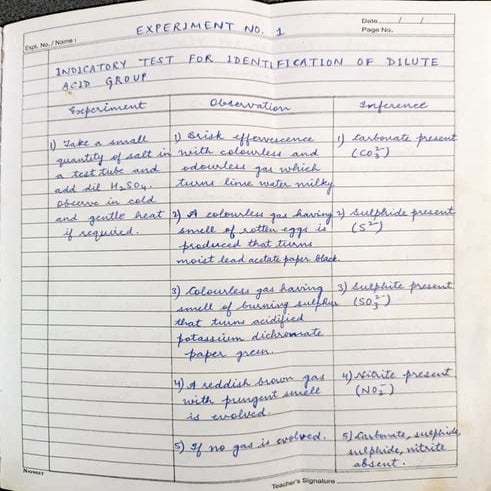 EXPERIMENT NO. 1
Date / /
Page No.
Expt. No./Name :
INDICATORY TEST FOR IDENTIFICATION OF DILUTE
ACID GROUP
Experiment
1) Take a small
quantity of salt in
a test tube and
add dil H₂SO₄.
Observe in cold
and gentle heat
if required.
Observation
1) Brisk effervescence
with colourless and
odourless gas which
turns lime water milky
2) A colourless gas having
smell of rotten eggs is
produced that turns
moist lead acetate paper black.
3) Colourless gas having
smell of burning sulphur
that turns acidified
potassium dichromate
paper green.
4) A reddish brown gas
with pungent smell
is evolved.
5) If no gas is evolved.
Inference
1) Carbonate present
(CO₃²⁻)
2) Sulphide present
(S²⁻)
3) Sulphite present
(SO₃²⁻)
4) Nitrite present
(NO₂⁻)
5) Carbonate, sulphide,
sulphide, nitrite
absent.
NAVNEET
Teacher's Signature